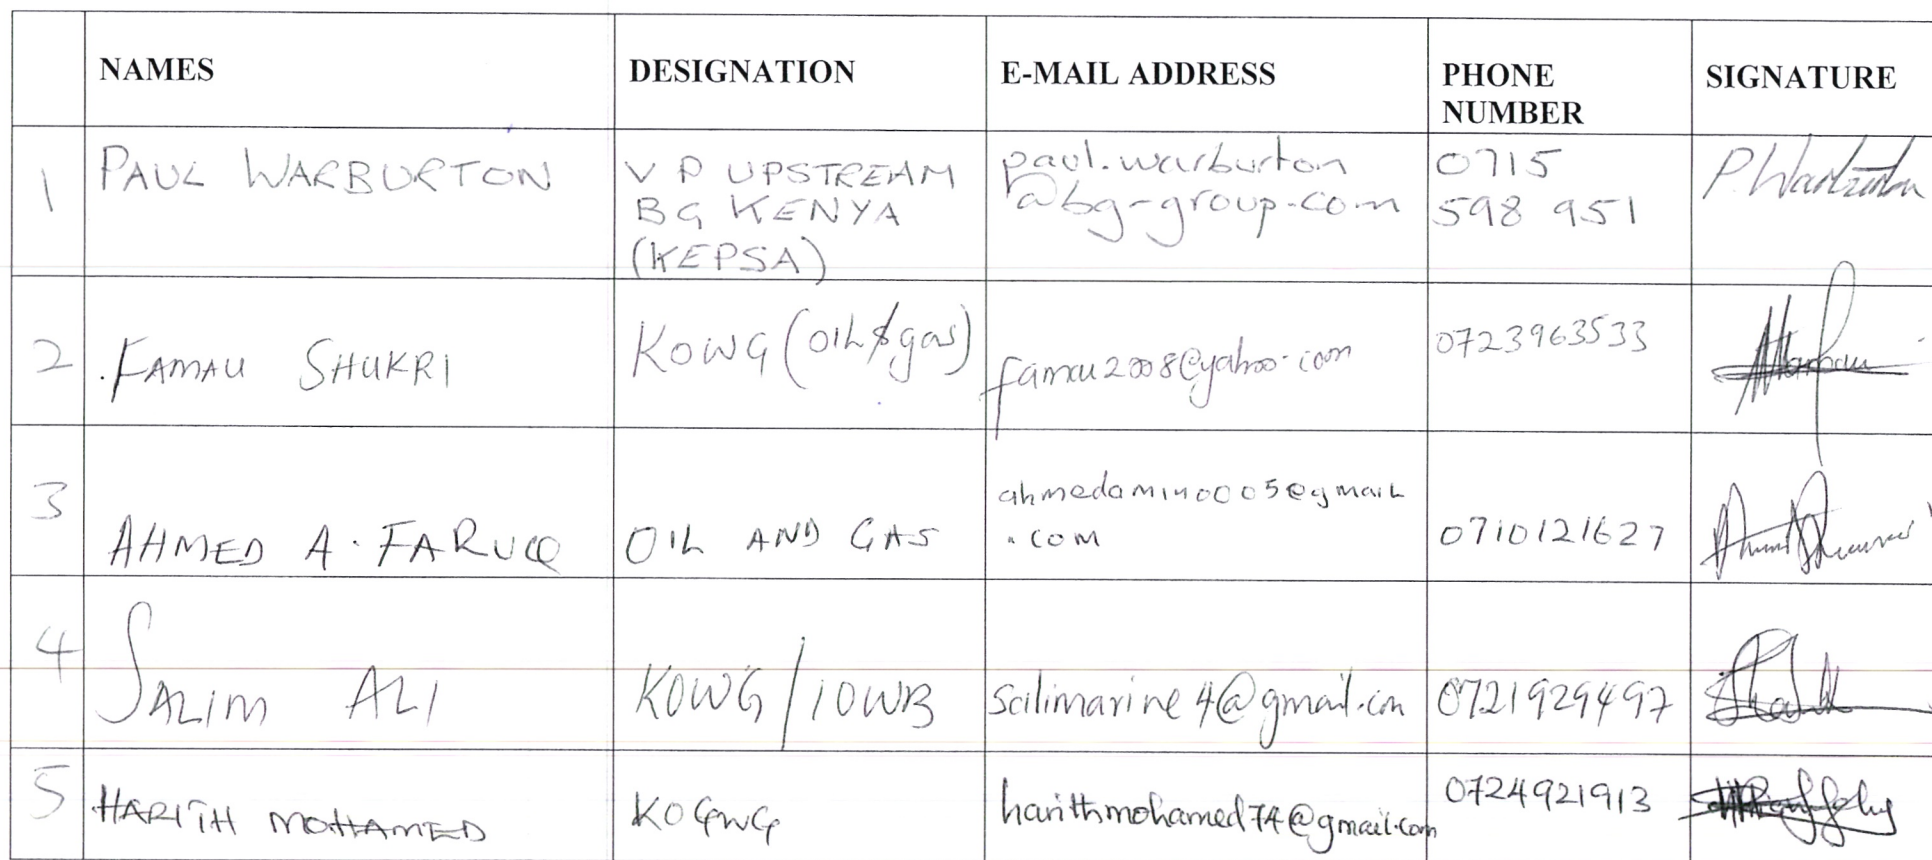 NAMES DESIGNATION E-MAIL ADDRESS PHONE NUMBER SIGNATURE
1 PAUL WARBURTON VP UPSTREAM BG KENYA (KEPSA) paul.warburton@bg-group.com 0715 598 951 P. Warburton
2 FAMAU SHUKRI KOWG (OIL & gas) famau2008@yahoo.com 0723963533
3 AHMED A. FARUQ OIL AND GAS ahmedamin0005@gmail.com 0710121627
4 SALIM ALI KOWG/IOWB salimarine4@gmail.com 0721929497
5 HARITH MOHAMED KOGWG harithmohamed74@gmail.com 0724921913